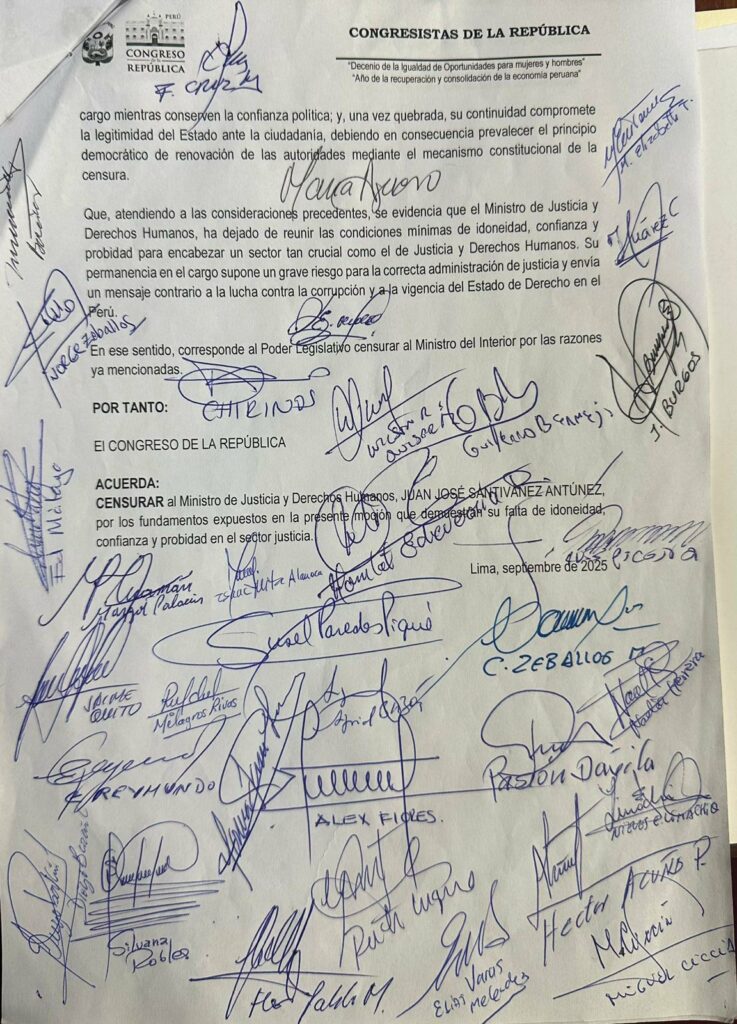 PERÚ
CONGRESO
de la
REPÚBLICA
CONGRESISTAS DE LA REPÚBLICA
"Decenio de la Igualdad de Oportunidades para mujeres y hombres"
"Año de la recuperación y consolidación de la economía peruana"
F. CRUZ M
cargo mientras conserven la confianza política; y, una vez quebrada, su continuidad compromete
la legitimidad del Estado ante la ciudadanía, debiendo en consecuencia prevalecer el principio
democrático de renovación de las autoridades mediante el mecanismo constitucional de la
censura.
M. Elizabeth T.
Que, atendiendo a las consideraciones precedentes, se evidencia que el Ministro de Justicia y
Derechos Humanos, ha dejado de reunir las condiciones mínimas de idoneidad, confianza y
probidad para encabezar un sector tan crucial como el de Justicia y Derechos Humanos. Su
permanencia en el cargo supone un grave riesgo para la correcta administración de justicia y envía
un mensaje contrario a la lucha contra la corrupción y a la vigencia del Estado de Derecho en el
Perú.
Juárez C
Jorge Zeballos
En ese sentido, corresponde al Poder Legislativo censurar al Ministro del Interior por las razones
ya mencionadas.
CHIRINOS
J. BURGOS
POR TANTO:
Guillermo Bermejo
El CONGRESO DE LA REPÚBLICA
ACUERDA:
CENSURAR al Ministro de Justicia y Derechos Humanos, JUAN JOSÉ SANTIVÁÑEZ ANTÚNEZ,
por los fundamentos expuestos en la presente moción que demuestran su falta de idoneidad,
confianza y probidad en el sector justicia.
Lima, septiembre de 2025
Margot Palacios
Susel Paredes Piqué
C. ZEBALLOS M
JAIME
QUITO
Milagros Rivas
Noelia Herrera
E. REYMUNDO
Pasión Dávila
ALEX FLORES.
Silvana
Robles
Ruth Luque
Hector ACUÑA P.
Flor Pablo M.
ELIAS Varas
Melendez
MIGUEL CICCIA